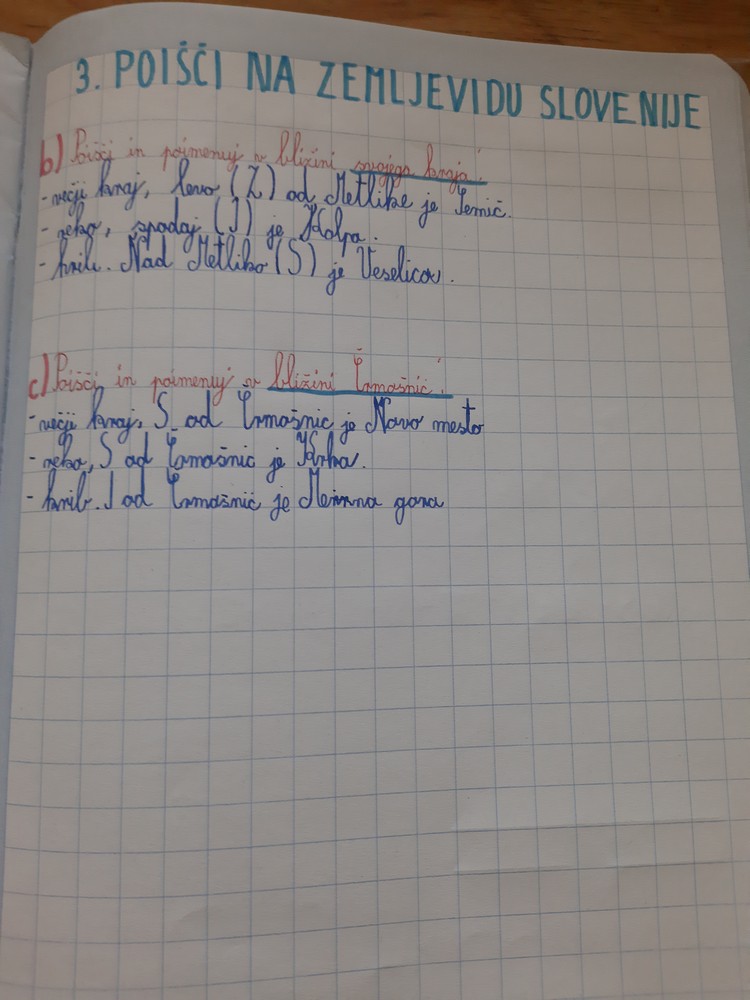 3. POIŠČI NA ZEMLJEVIDU SLOVENIJE
b) Poišči in poimenuj v bližini svojega kraja:
- večji kraj, levo (Z) od Metlike je Semič.
- reko, spodaj (J) je Kolpa.
- hrib. Nad Metliko (S) je Veselica.
c) Poišči in poimenuj v bližini Črmošnic:
- večji kraj, S od Črmošnic je Novo mesto
- reko, S od Črmošnic je Krka.
- hrib. J od Črmošnic je Mirna gora